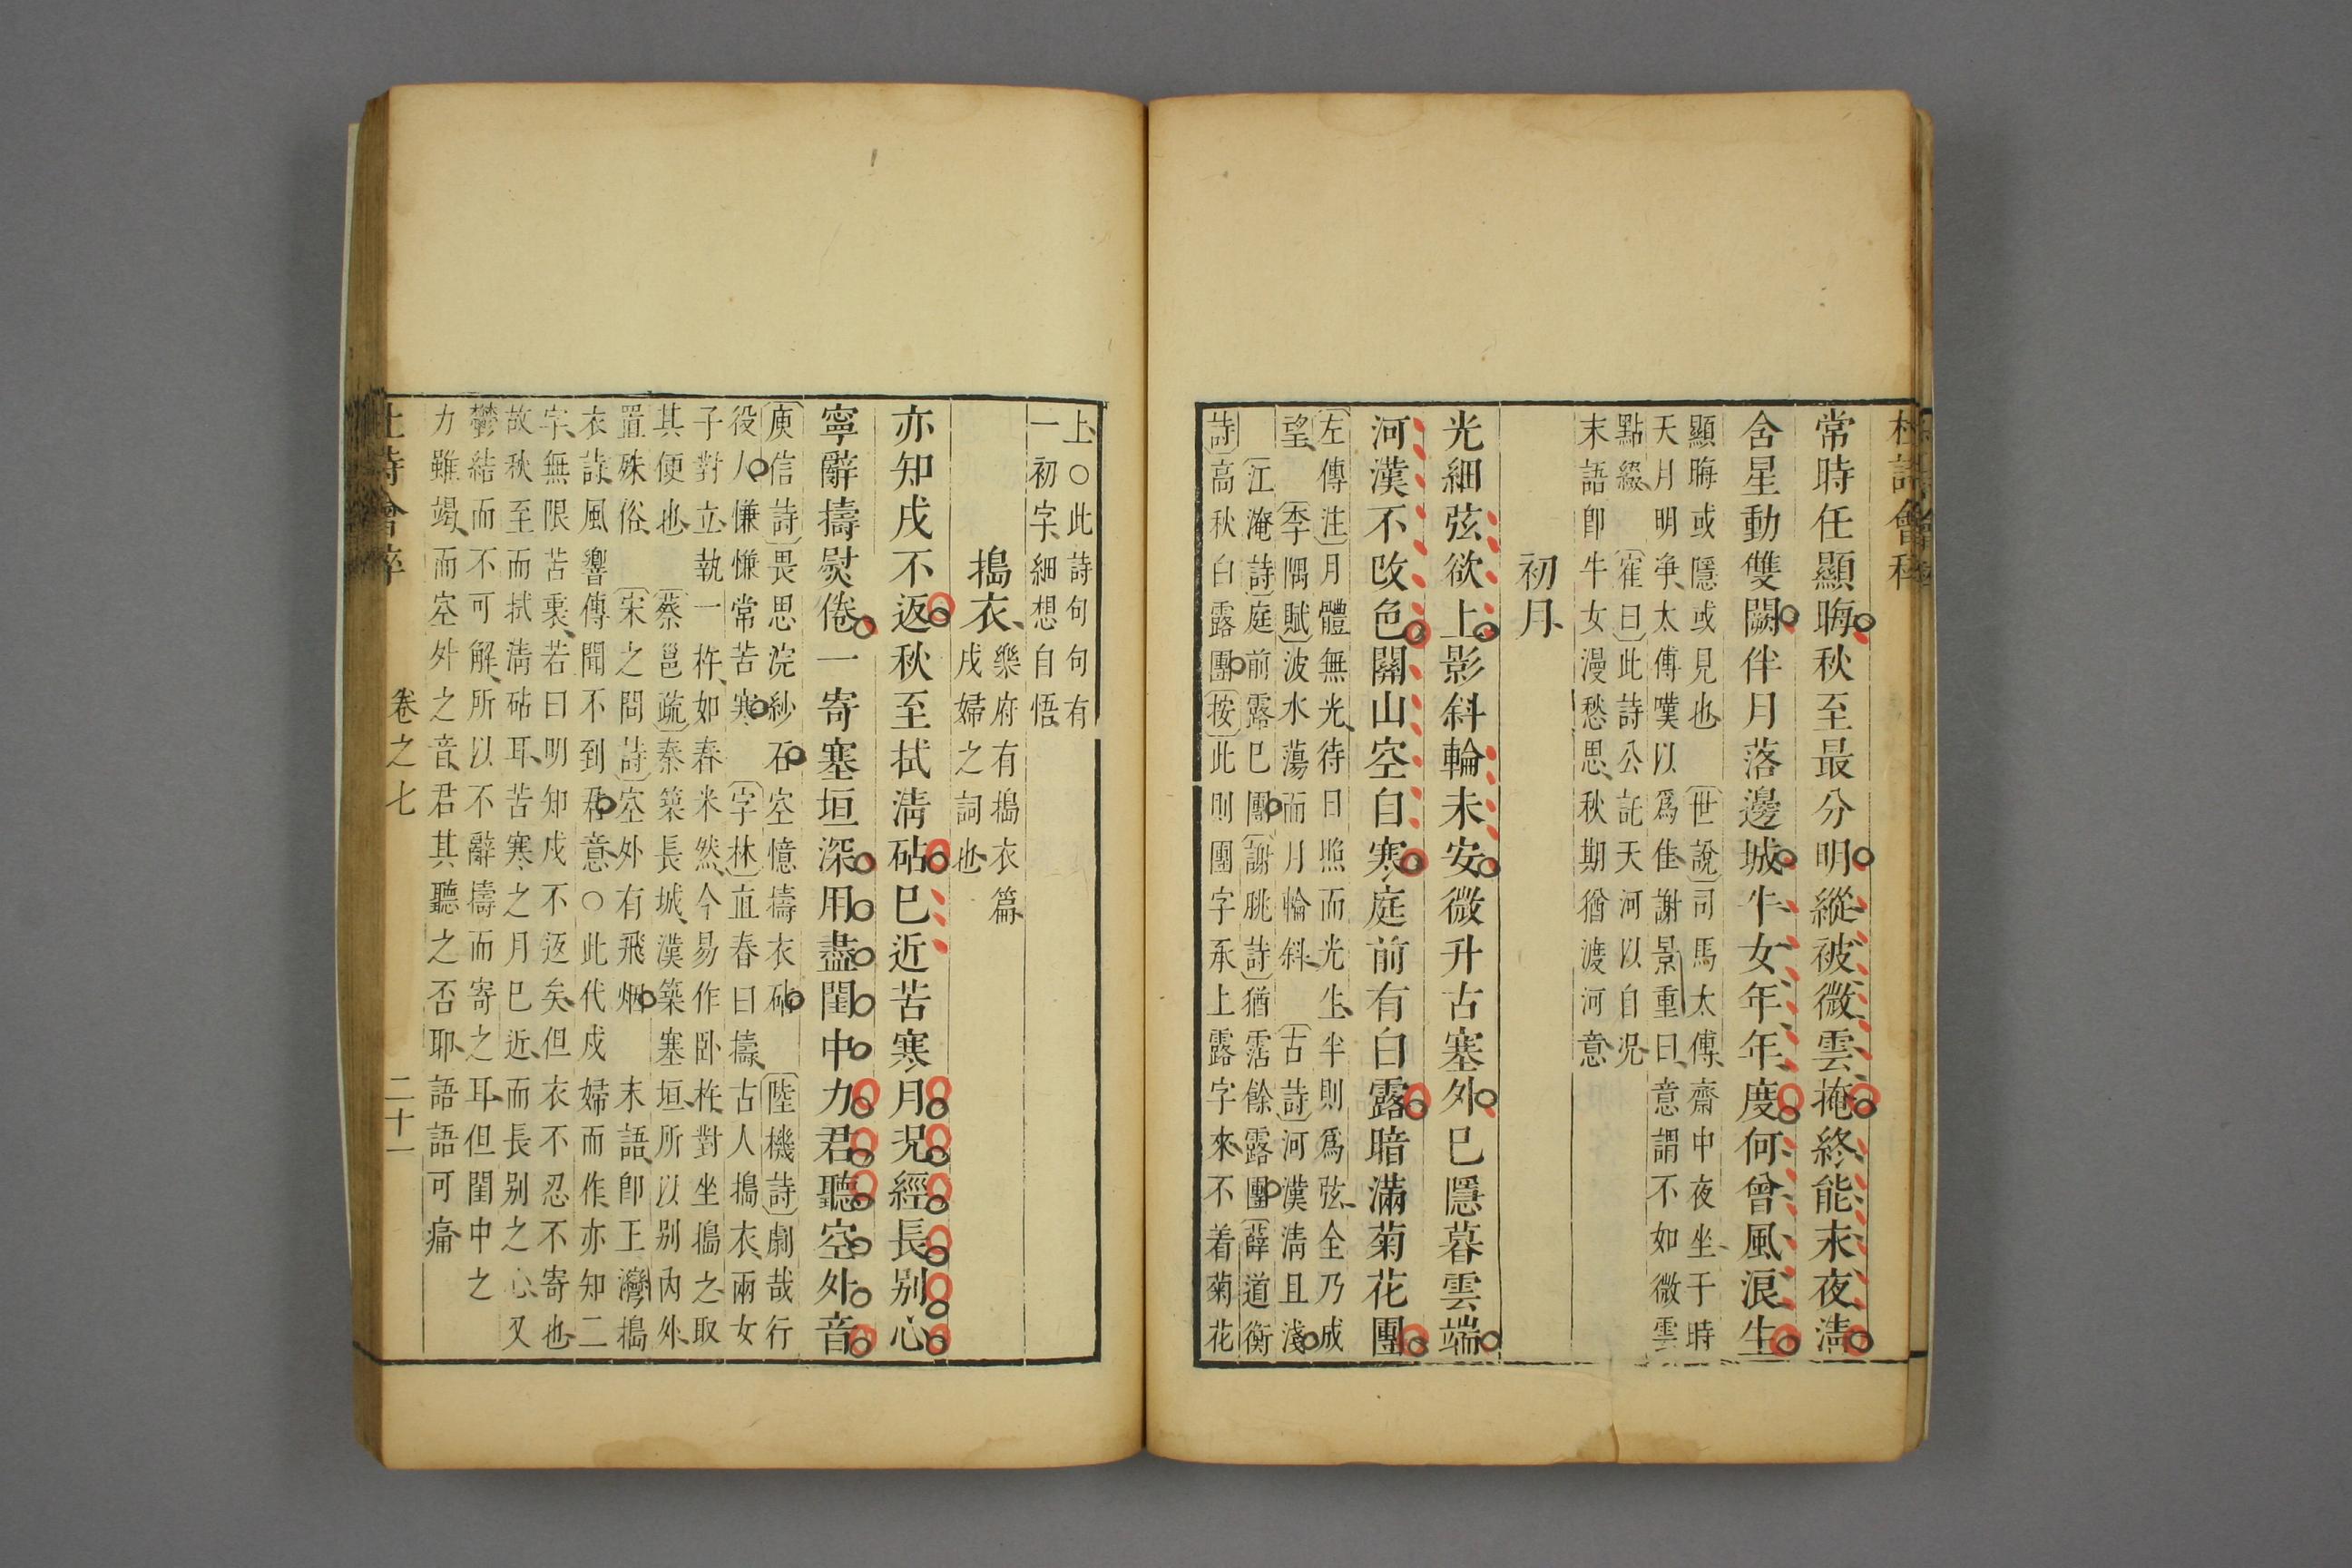 杜詩會稡
常時任顯晦秋至最分明縱被微雲掩終能末夜淸
含星動雙闕伴月落邊城牛女年年度何曾風浪生
顯晦或隱或見也 世說司馬太傅齋中夜坐于時
天月明爭太傅嘆以爲佳謝景重曰意謂不如微雲
點綴 寉曰此詩公託天河以自况
末語卽牛女漫愁思秋期猶渡河意
初月
光細弦欲上影斜輪未安微升古塞外巳隱暮雲端
河漢不改色關山空自寒庭前有白露暗滿菊花團
左傳注月體無光待日照而光生半則爲弦全乃成
望 李隅賦波水蕩而月輪斜 古詩河漢淸且淺
江淹詩庭前露巳團 謝朓詩猶霑餘露團 薛道衡
詩高秋白露團 按此則團字承上露字來不着菊花
上○此詩句句有
一初字細想自悟
搗衣 樂府有搗衣篇
戍婦之詞也
亦知戍不返秋至拭淸砧巳近苦寒月况經長别心
寧辭擣熨倦一寄塞垣深用盡閨中力君聽空外音
庾信詩畏思浣紗石空憶擣衣砧 陸機詩劇哉行
役人慊慊常苦寒 字林直舂曰擣古人搗衣兩女
子對立執一杵如舂米然今易作卧杵對坐搗之取
其便也 蔡邕疏秦築長城漢築塞垣所以别內外
置殊俗 宋之問詩空外有飛烟 末語卽王灣搗
衣詩風響傳聞不到君意○此代戍婦而作亦知二
字無限苦衷若曰明知戍不返矣但衣不忍不寄也
故秋至而拭淸砧耳苦寒之月巳近而長别之心又
鬱結而不可解所以不辭擣而寄之耳但閨中之
力雖竭而空外之音君其聽之否耶語語可痛
杜詩會稡 卷之七 二十一